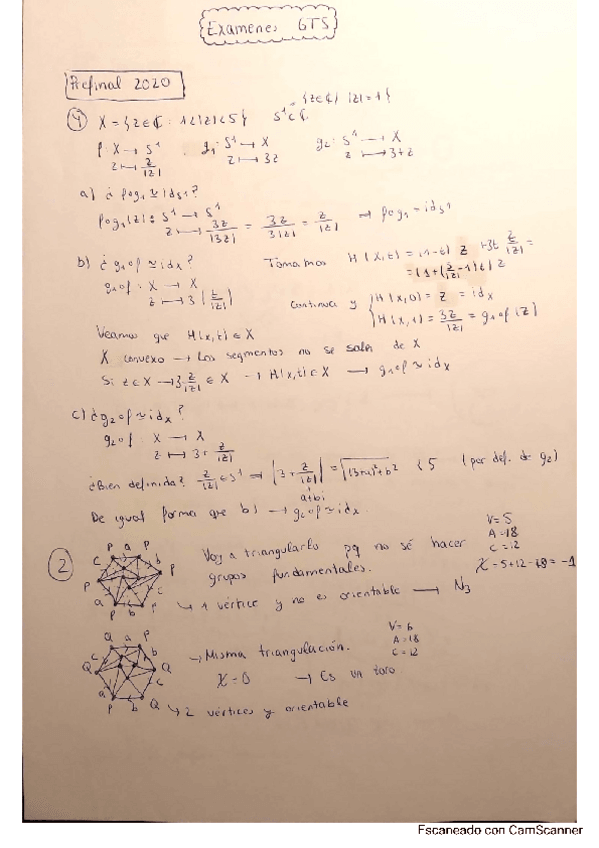 Examenes GTS
Prefinal 2020
④ X = {z∈ℂ : 1<|z|<5} S¹⊂ℂ {z∈ℂ / |z|=1}
f: X → S¹ g₁: S¹ → X g₂: S¹ → X
z ↦ z/|z| z ↦ 3z z ↦ 3+z
a) ¿ fog₁ ≃ Id_S¹?
fog₁(z): S¹ → S¹
z ↦ 3z/|3z| = 3z/3|z| = z/|z| ⇒ fog₁ = id_S¹
b) ¿ g₁of ≃ id_X? Tomamos H(x,t) = (1-t) z + 3t z/|z| =
g₁of : X → X = (1+(3/|z| -1)t) z
z ↦ 3(z/|z|) continua y { H(x,0) = z = id_X
H(x,1) = 3z/|z| = g₁of(z)
Veamos que H(x,t) ∈ X
X convexo → Los segmentos no se salen de X
Si z∈X → 3 z/|z| ∈ X → H(x,t) ∈ X → g₁of ≃ id_X
c) ¿g₂of ≃ id_X?
g₂of : X → X
z ↦ 3+ z/|z|
¿Bien definida? z/|z| ∈ S¹ ⇒ |3+ z/|z|| = √((3+a)²+b²) < 5 (por def. de g₂)
a+bi
De igual forma que b) → g₂of ≃ id_X.
② P a P b P c P b P a P c
Voy a triangularlo pq no sé hacer
grupos fundamentales.
V=5
A=18
C=12
χ = 5+12-18 = -1
↳ 1 vértice y no es orientable → N₃
Q a P b Q c Q b P a Q c
→ Misma triangulación.
V=6
A=18
C=12
χ=0 → Es un toro
↳ 2 vértices y orientable
Escaneado con CamScanner